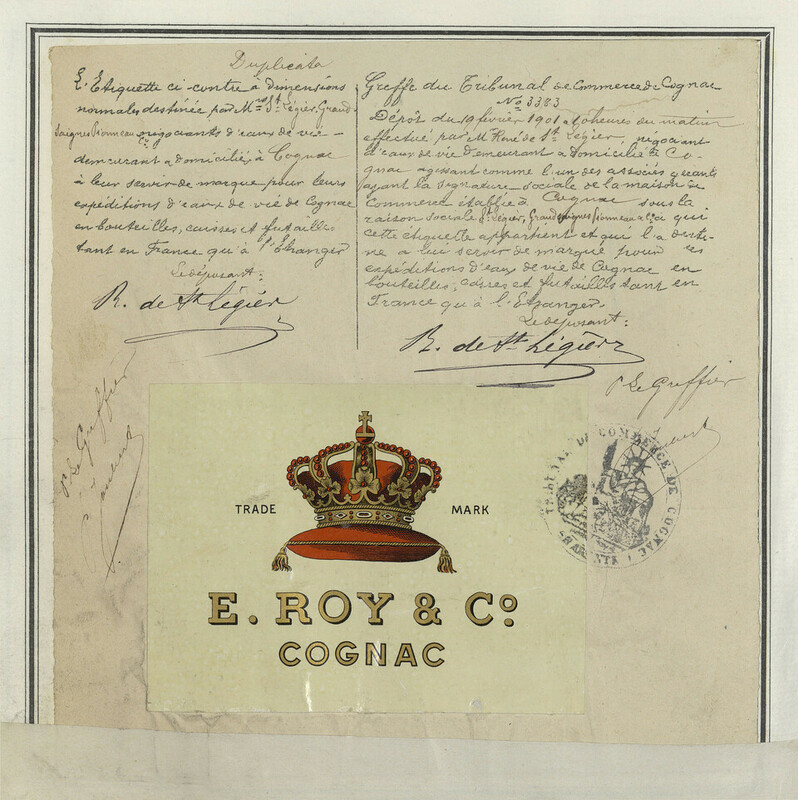 Duplicata
L'Etiquette ci-contre à dimensions
normales destinée par Mrs St Légier, Grand-
Saignes Pionneau & Cie négociants d'eaux de vie
demeurant & domiciliés à Cognac
à leur servir de marque pour leurs
expéditions d'eaux de vie de Cognac
en bouteilles, caisses et futailles
tant en France qu'à l'Etranger
Le déposant:
R. de St Légier
Greffe du Tribunal de Commerce de Cognac
No 3383
Dépôt du 19 février 1901 à heures du matin
effectué par M René de St Légier, négociant
d'eaux de vie demeurant & domicilié à Co-
gnac agissant comme l'un des associés gérants
ayant la signature sociale de la maison de
Commerce établie à Cognac sous la
raison sociale St Légier, Grandsaignes Pionneau & Cie à qui
cette étiquette appartient et qui l'a desti-
née à lui servir de marque pour ses
expéditions d'eaux de vie de Cognac en
bouteilles, caisses et futailles tant en
France qu'à l'Etranger
Le déposant:
R. de St Légier
Pr Le Greffier
Pr Le Greffier
TRIBUNAL DE COMMERCE DE COGNAC
CHARENTE
TRADE MARK
E. ROY & Co
COGNAC